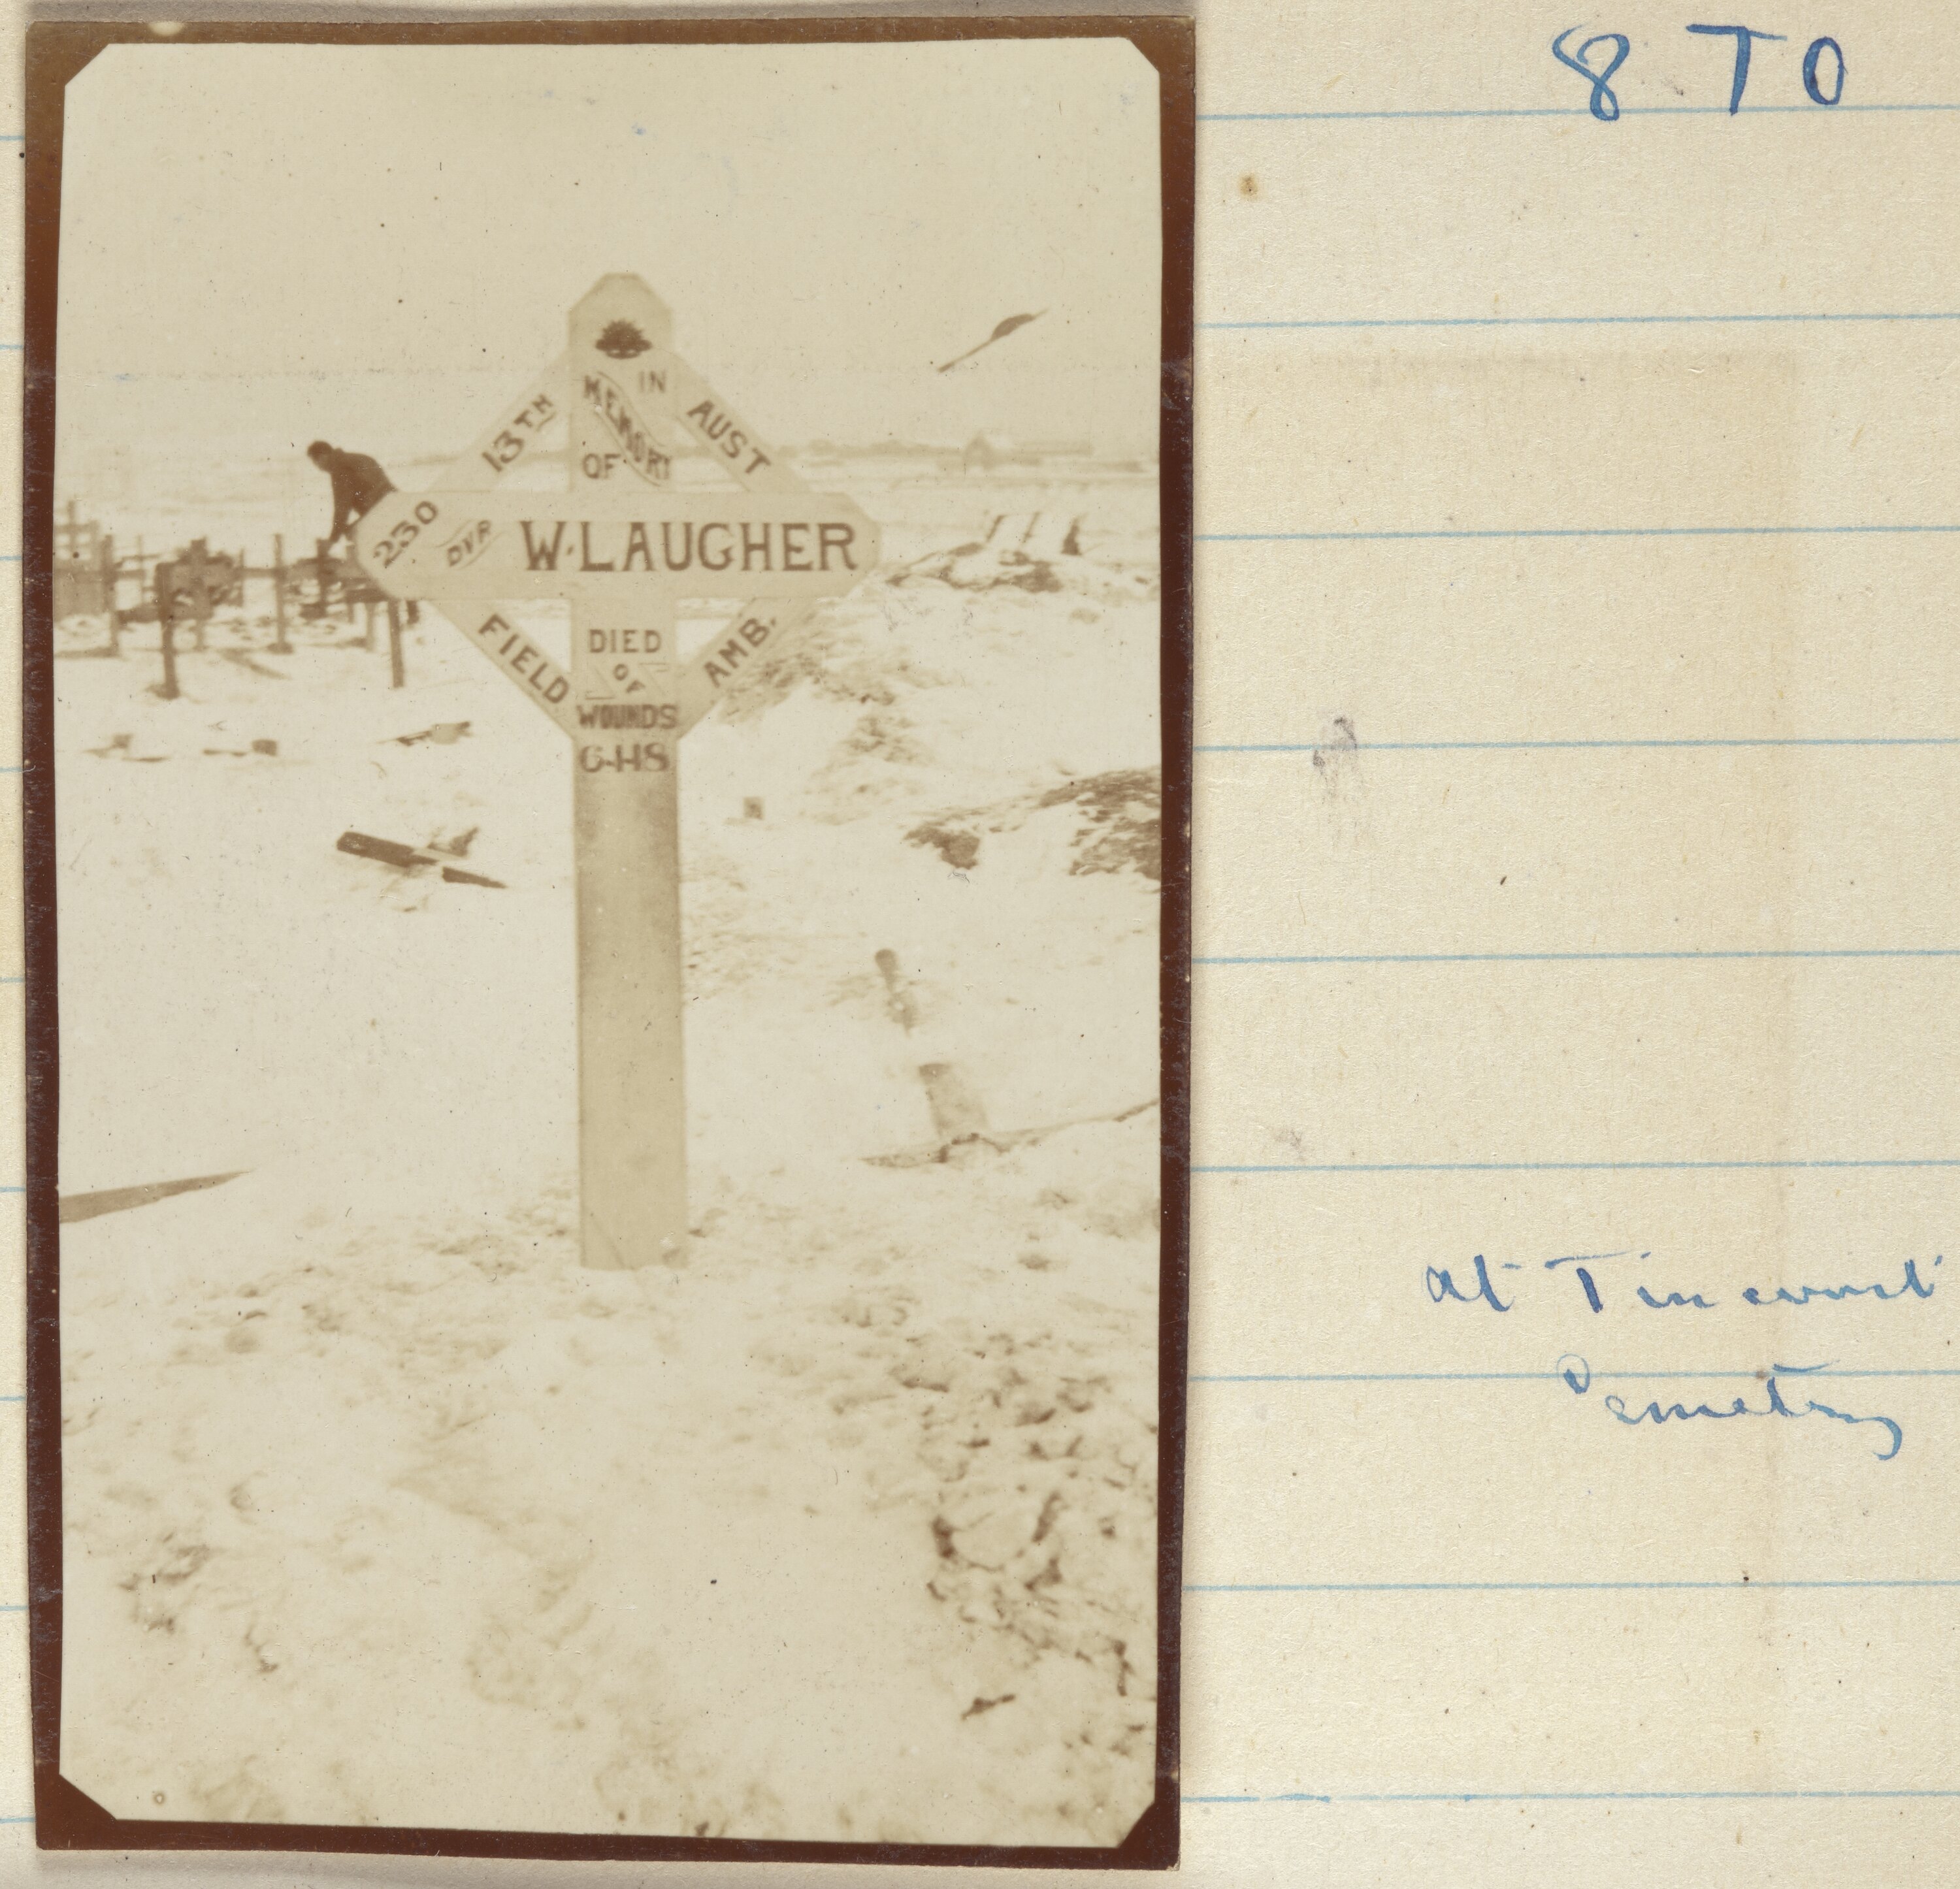 8 TO
IN
MEMORY
OF
13TH AUST
230 DVR W. LAUGHER
FIELD AMB.
DIED
OF
WOUNDS
6-1-18
At Tincourt
Cemetry